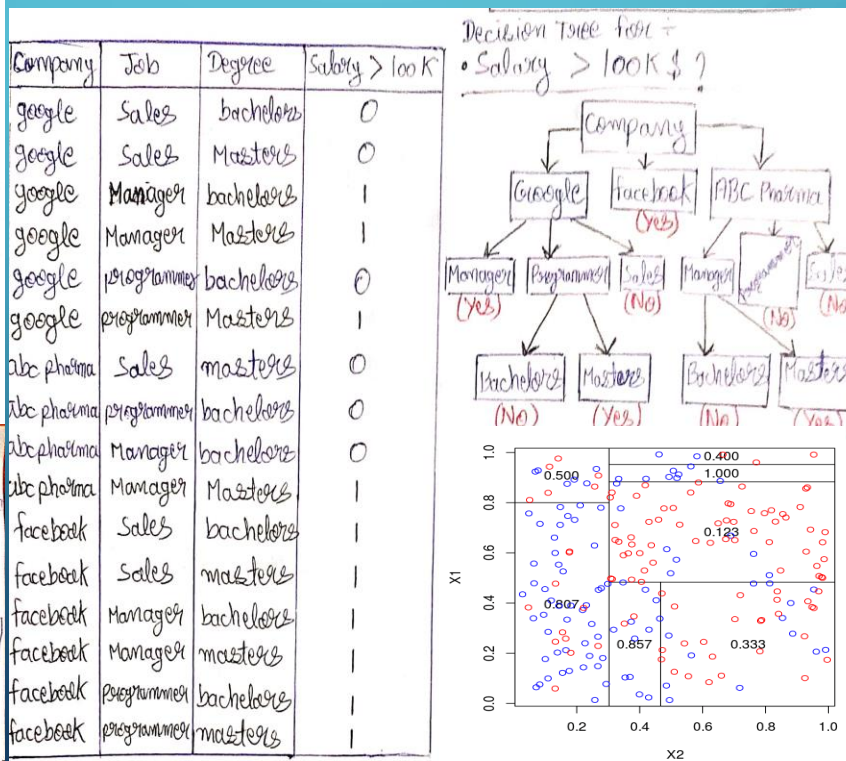 Company Job Degree Salary > 100 K
google Sales bachelors 0
google Sales Masters 0
google Manager bachelors 1
google Manager Masters 1
google programmer bachelors 0
google programmer Masters 1
abc pharma Sales masters 0
abc pharma programmer bachelors 0
abc pharma Manager bachelors 0
abc pharma Manager Masters 1
facebook Sales bachelors 1
facebook Sales masters 1
facebook Manager bachelors 1
facebook Manager masters 1
facebook programmer bachelors 1
facebook programmer masters 1
Decision Tree for ÷
• Salary > 100K $ ?
Company
Google facebook ABC Pharma
(Yes)
Manager Programmer Sales Manager Programmer Sales
(Yes) (No) (No) (No)
Bachelors Masters Bachelors Masters
(No) (Yes) (No) (Yes)
X1
1.0
0.8
0.6
0.4
0.2
0.0
0.500
0.400
1.000
0.123
0.807
0.857
0.333
0.2 0.4 0.6 0.8 1.0
X2